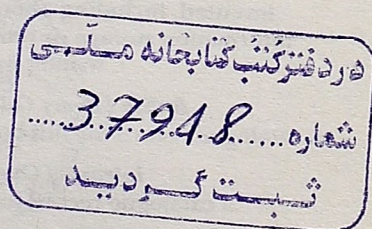 در دفتر کتب کتابخانه ملی
شماره ......37948......
ثبت گردید